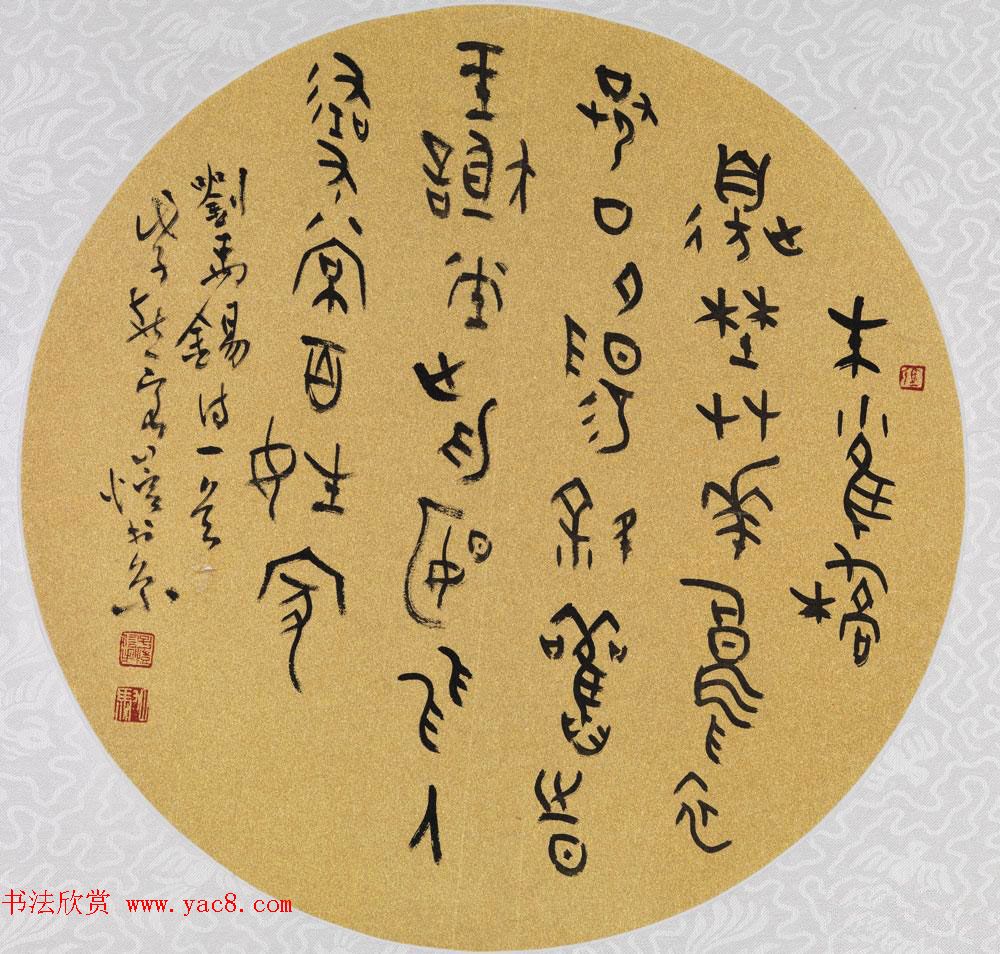 朱雀橋
邊野草華烏衣
巷口夕陽斜舊時
王謝堂前燕飛入
尋常百姓家
劉禹錫詩一首
戊子秋
书法欣赏 www.yac8.com